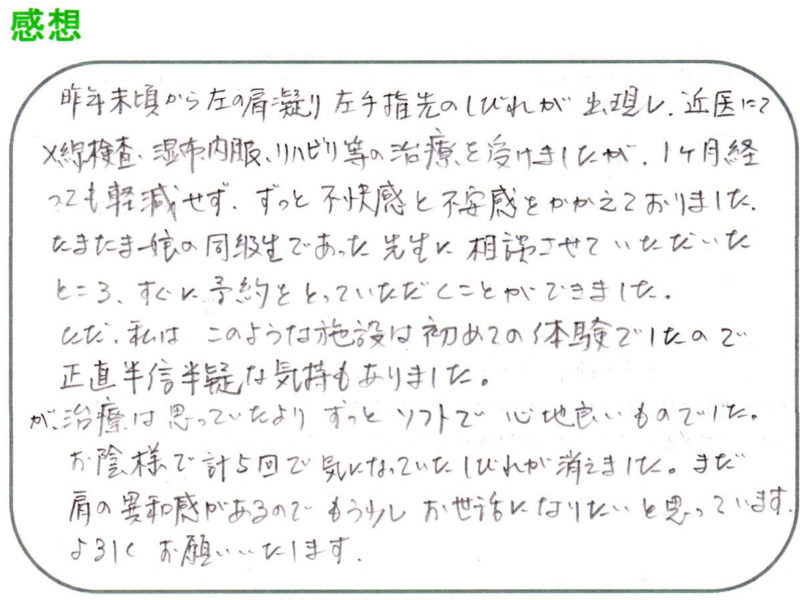 感想
昨年末頃から左の肩凝り左手指先のしびれが出現し、近医にて
X線検査、湿布、内服、リハビリ等の治療を受けましたが、1ヶ月経
っても軽減せず、ずっと不快感と不安感をかかえておりました。
たまたま娘の同級生であった先生に相談させていただいた
ところ、すぐに予約をとっていただくことができました。
ただ、私はこのような施設は初めての体験でしたので
正直半信半疑な気持もありました。
が、治療は思っていたよりずっとソフトで心地良いものでした。
お陰様で計5回で気になっていたしびれが消えました。まだ
肩の異和感があるのでもう少しお世話になりたいと思っています。
よろしくお願いいたします。